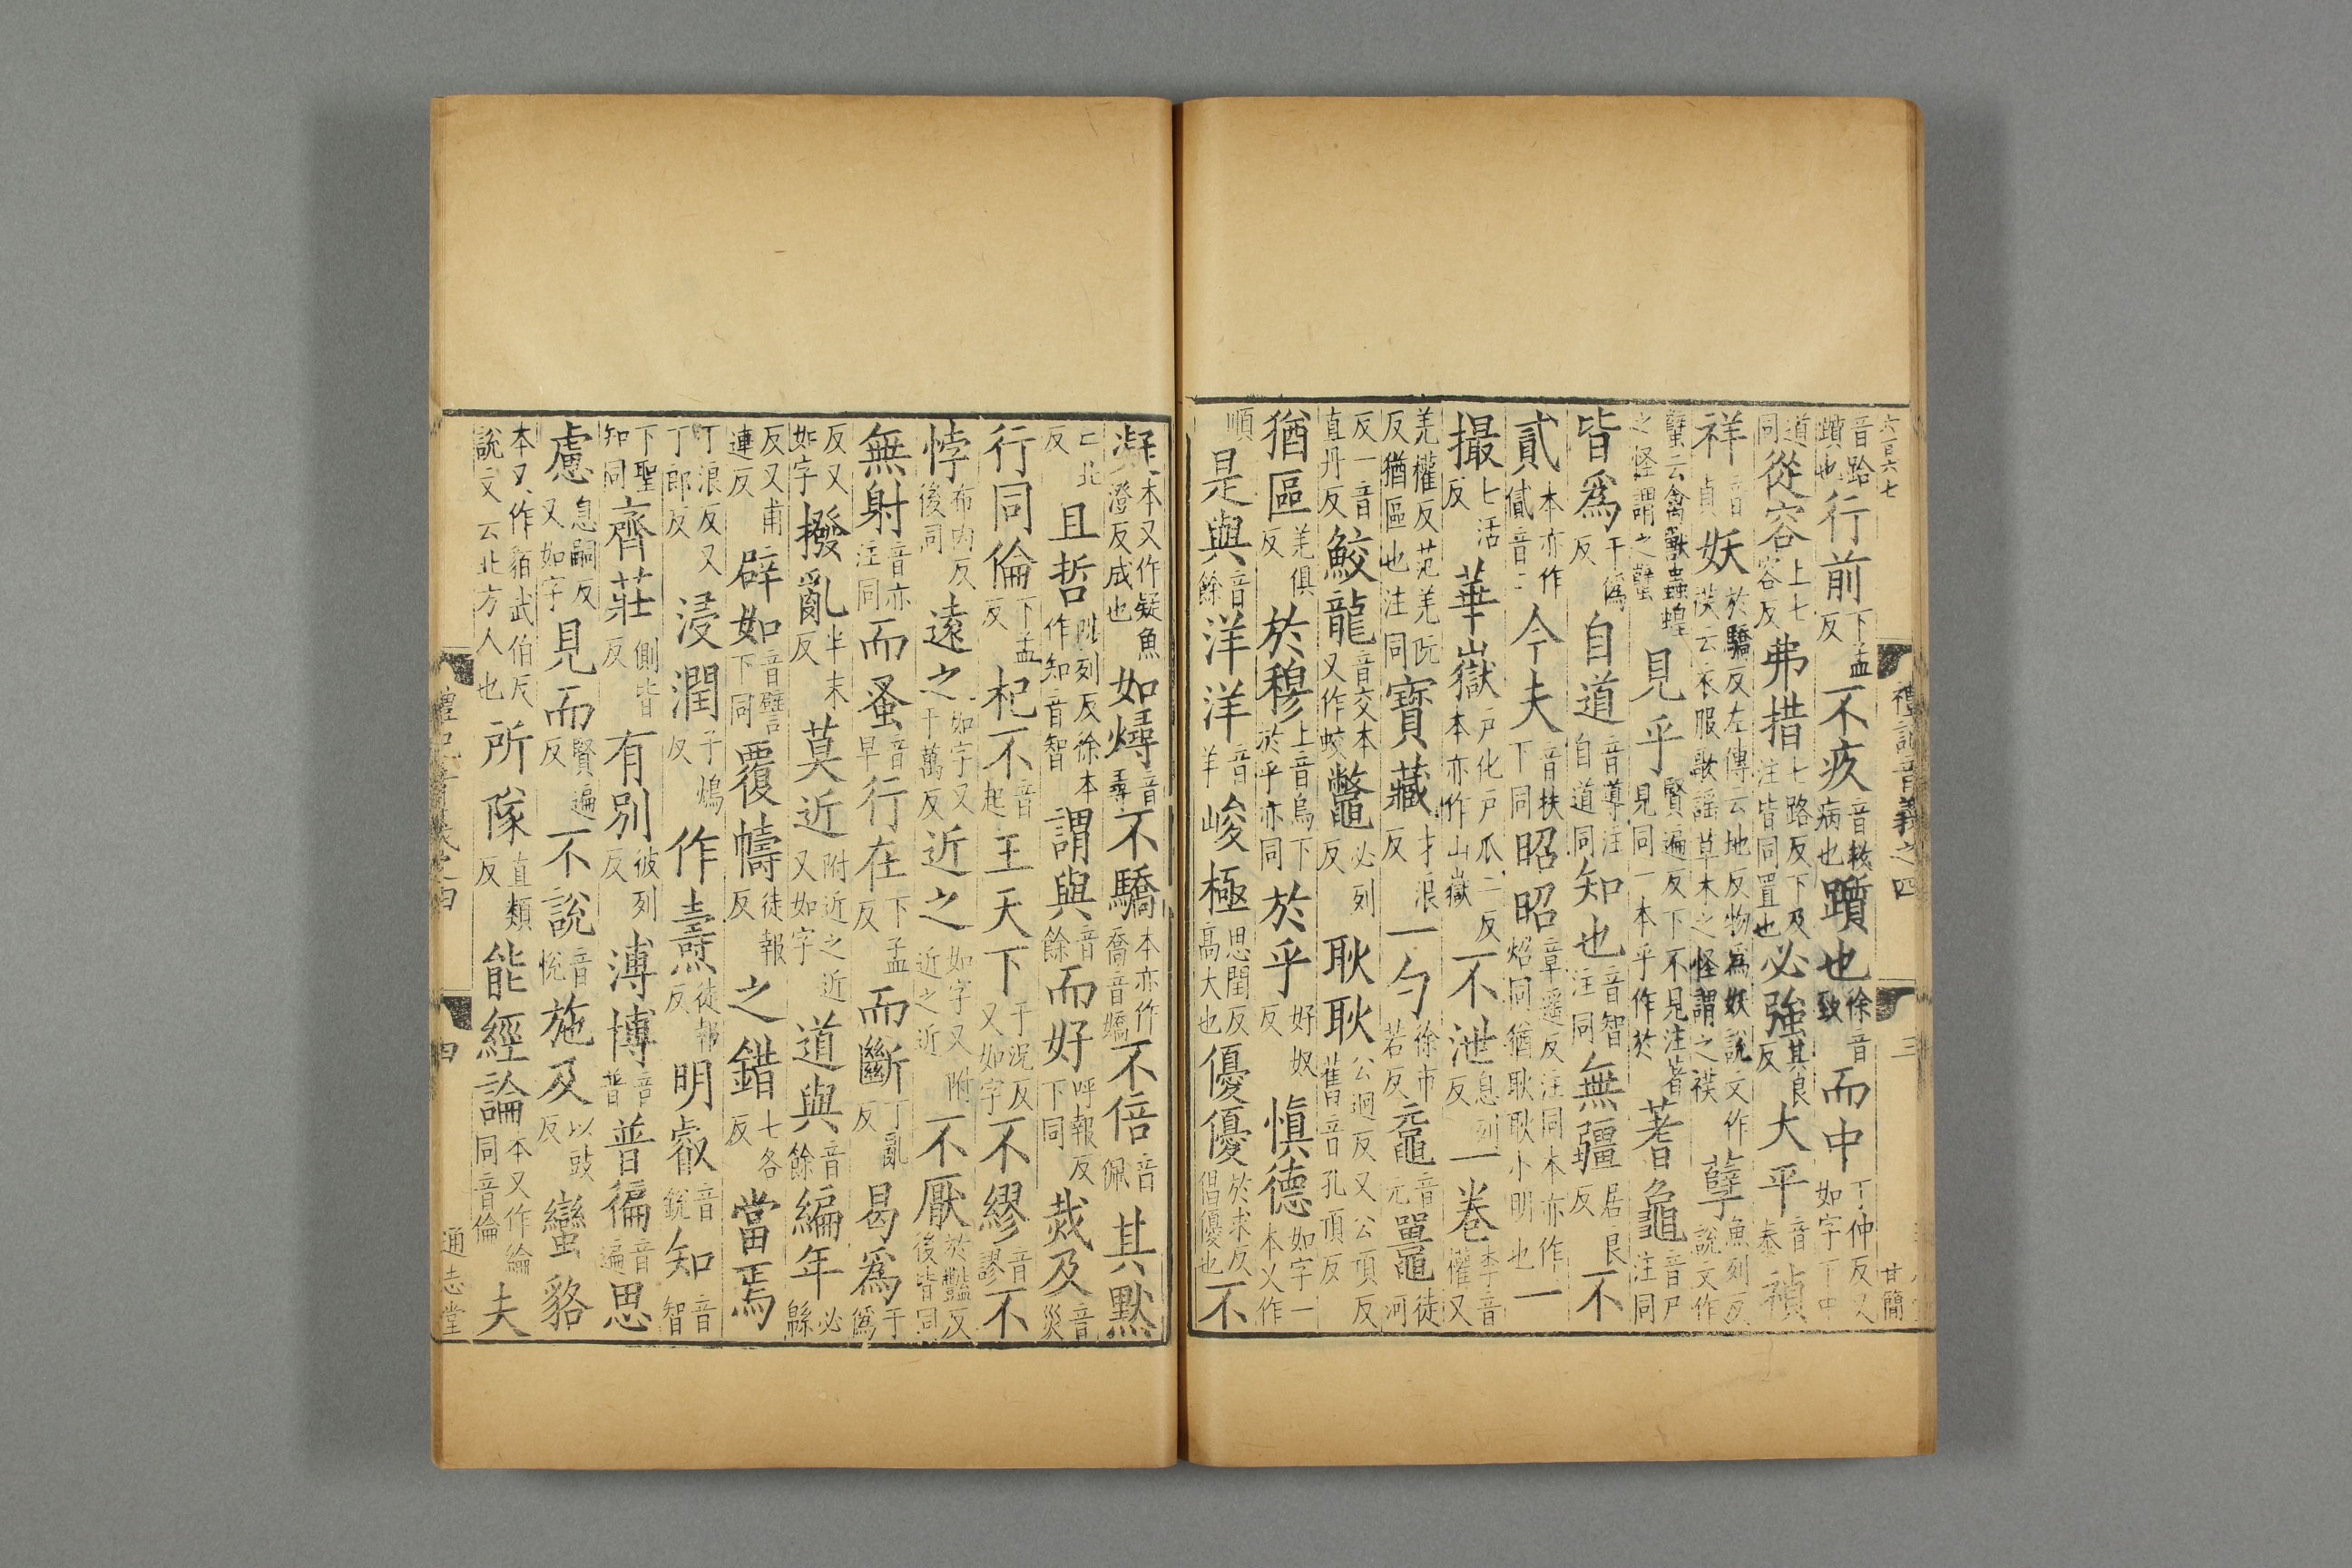 六百六七
禮記音義之四 三 甘簡
音跲躓也行前下孟反不疚音救病也躓也徐音致而中丁仲反又如字下中
道同從容上七容反弗措七路反下及注皆同置也必強其良反大平音泰禎
祥音貞妖於驕反左傳云地反物爲妖說文作䄏云衣服歌謠草木之怪謂之䄏孽魚刻反說文作
蠥云禽獸蟲蝗之怪謂之蠥見乎賢遍反下不見注著見同一本乎作於蓍龜音尸注同
皆爲于僞反自道音導注自道同知也音智注同無疆居良反不
貳本亦作貣音二今夫音扶下同昭昭章遙反注同本亦作炤同猶耿耿小明也一
撮七活反華嶽戶化戶瓜二反本亦作山嶽不泄息列反一卷李音權又
羌權反范羌阮反猶區也注同寶藏才浪反一勺徐市若反黿音元鼉徒河
反一音直丹反鮫龍音交本又作蛟鼈必列反耿耿公迥反又公頂反舊音孔頂反
猶區羌俱反於穆上音烏下於乎亦同於乎好奴反愼德如字一本又作
順是與音餘洋洋音羊峻極思閏反高大也優優於求反倡優也不
凝本又作疑魚澄反成也如燖音尋不驕本亦作喬音嬌不倍音佩其默
亡北反且哲陟列反徐本作知音智謂與音餘而好呼報反下同烖及音災
行同倫下孟反杞不音起王天下于況反又如字不繆音謬不
悖布內反後同遠之如字又于萬反近之如字又附近之近不厭於豔反後皆同
無射音亦注同而蚤音早行在下孟反而斷丁亂反曷爲于僞
反又如字撥亂半末反莫近附近之近又如字道與音餘編年必緜
反又甫連反辟如音譬下同覆幬徒報反之錯七各反當焉
丁浪反又丁郎反浸潤子鴆反作燾徒報反明叡音銳知音智
下聖知同齊莊側皆反有別彼列反溥博音普普徧音遍思
慮息嗣反又如字見而賢遍反不說音悅施及以豉反蠻貉
本又作貊武伯反說文云北方人也所隊直類反能經論本又作綸同音倫夫
禮記音義之四 四 通志堂